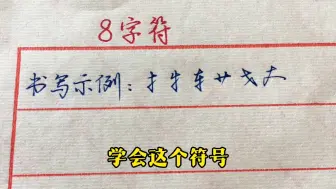 8字符
书写示例：扌牜车艹戈大
学会这个符号